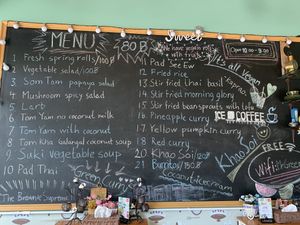 MENU
1 Fresh spring rolls/100฿
2 Vegetable salad/100฿
3 Som Tam papaya salad
4 Mushroom spicy salad
5 Lart
6 Tom Yam no coconut milk
7 Tom Yam with coconut
8 Tom Kha Galangal coconut soup
9 Suki vegetable soup
10 Pad Thai
80฿
11 Pad See Ew
12 Fried rice
13 Stir fried thai basil
14 Stir fried morning glory
15 Stir fried bean sprouts with tofu
16 Pineapple curry
17 Yellow pumpkin curry
18 Red curry
19 Green curry
20 Khao Soi
21 Burrito/150฿
Sweet
We have potato roll
with fruit
It's all Vegan
Open 10:00 - 8:00
ICE COFFEE
Khao Soi
FREE
Wifi
Green curry
coconut icecream
The Brownie Supreme